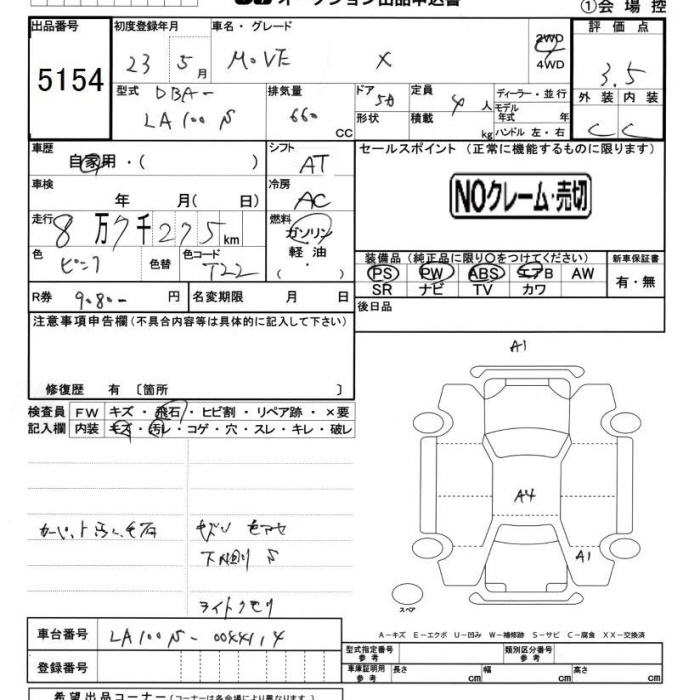 オークション出品申込書
①会場控
出品番号 初度登録年月 車名・グレード 評価点
5154 23 5月 MOVE X 2WD 3.5
4WD
型式 DBA- 排気量 ドア 5D 定員 ディーラー・並行 外装 内装
LA100S 660 cc 形状 積載 4人 モデル年式 年 C C
kg ハンドル 左・右
車歴 シフト セールスポイント (正常に機能するものに限ります)
自家用・( ) AT
車検 冷房 NOクレーム・売切
年 月( 日) AC
走行 8万7千275km 燃料
ガソリン
色 色替 色コード 軽油 装備品 (純正品に限り○をつけてください) 新車保証書
ピンク T22 ( ) PS PW ABS エアB AW 有・無
R券 9080- 円 名変期限 月 日 SR ナビ TV カワ
後日品
注意事項申告欄(不具合内容等は具体的に記入して下さい)
A1
修復歴 有 〔箇所 〕
検査員 FW キズ・飛石・ヒビ割・リペア跡・×要
記入欄 内装 キズ・汚レ・コゲ・穴・スレ・キレ・破レ
A4
A1
ライトクモリ
スペア
A−キズ E−エクボ U−凹み W−補修跡 S−サビ C−腐食 XX−交換済
車台番号 LA100S-0044114
型式指定番号 参考 類別区分番号 参考
登録番号 車庫証明用 参考 長さ cm 幅 cm 高さ cm
希望出品コーナー(コーナーは各会場により異なります。)